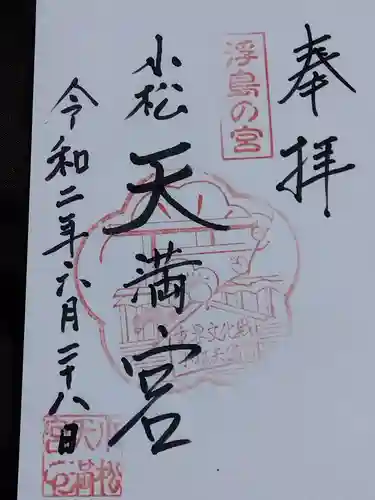 奉拝
浮島の宮
小松天満宮
令和二年六月二十八日
小松
天満
宮